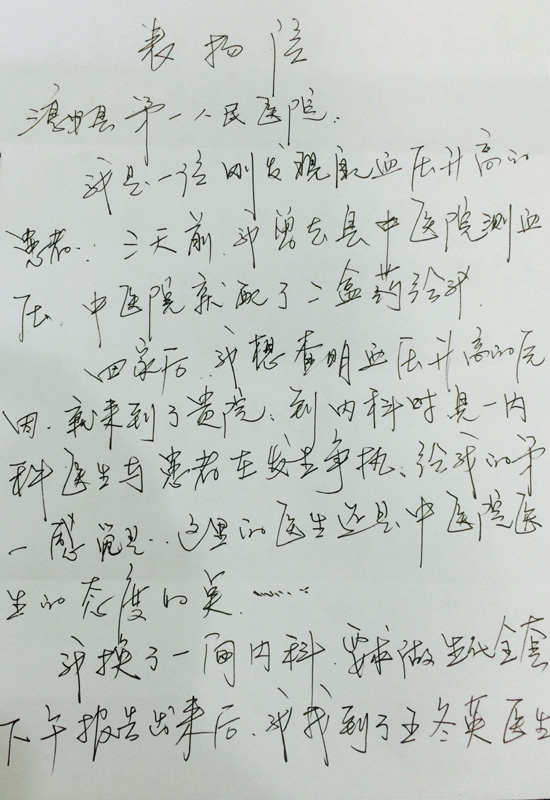 表扬信
淳安县第一人民医院:
我是一位刚发现血压升高的
患者. 三天前, 我曾去县中医院测血
压. 中医院就配了二盒药给我.
回家后, 我想查明血压升高的原
因. 就来到了贵院. 到内科时见一内
科医生与患者在发生争执, 给我的第
一感觉是.. 这里的医生还是中医院医
生的态度的
我换了一间内科, 要求做生化全套
下午报告出来后, 我找到了王冬英医生